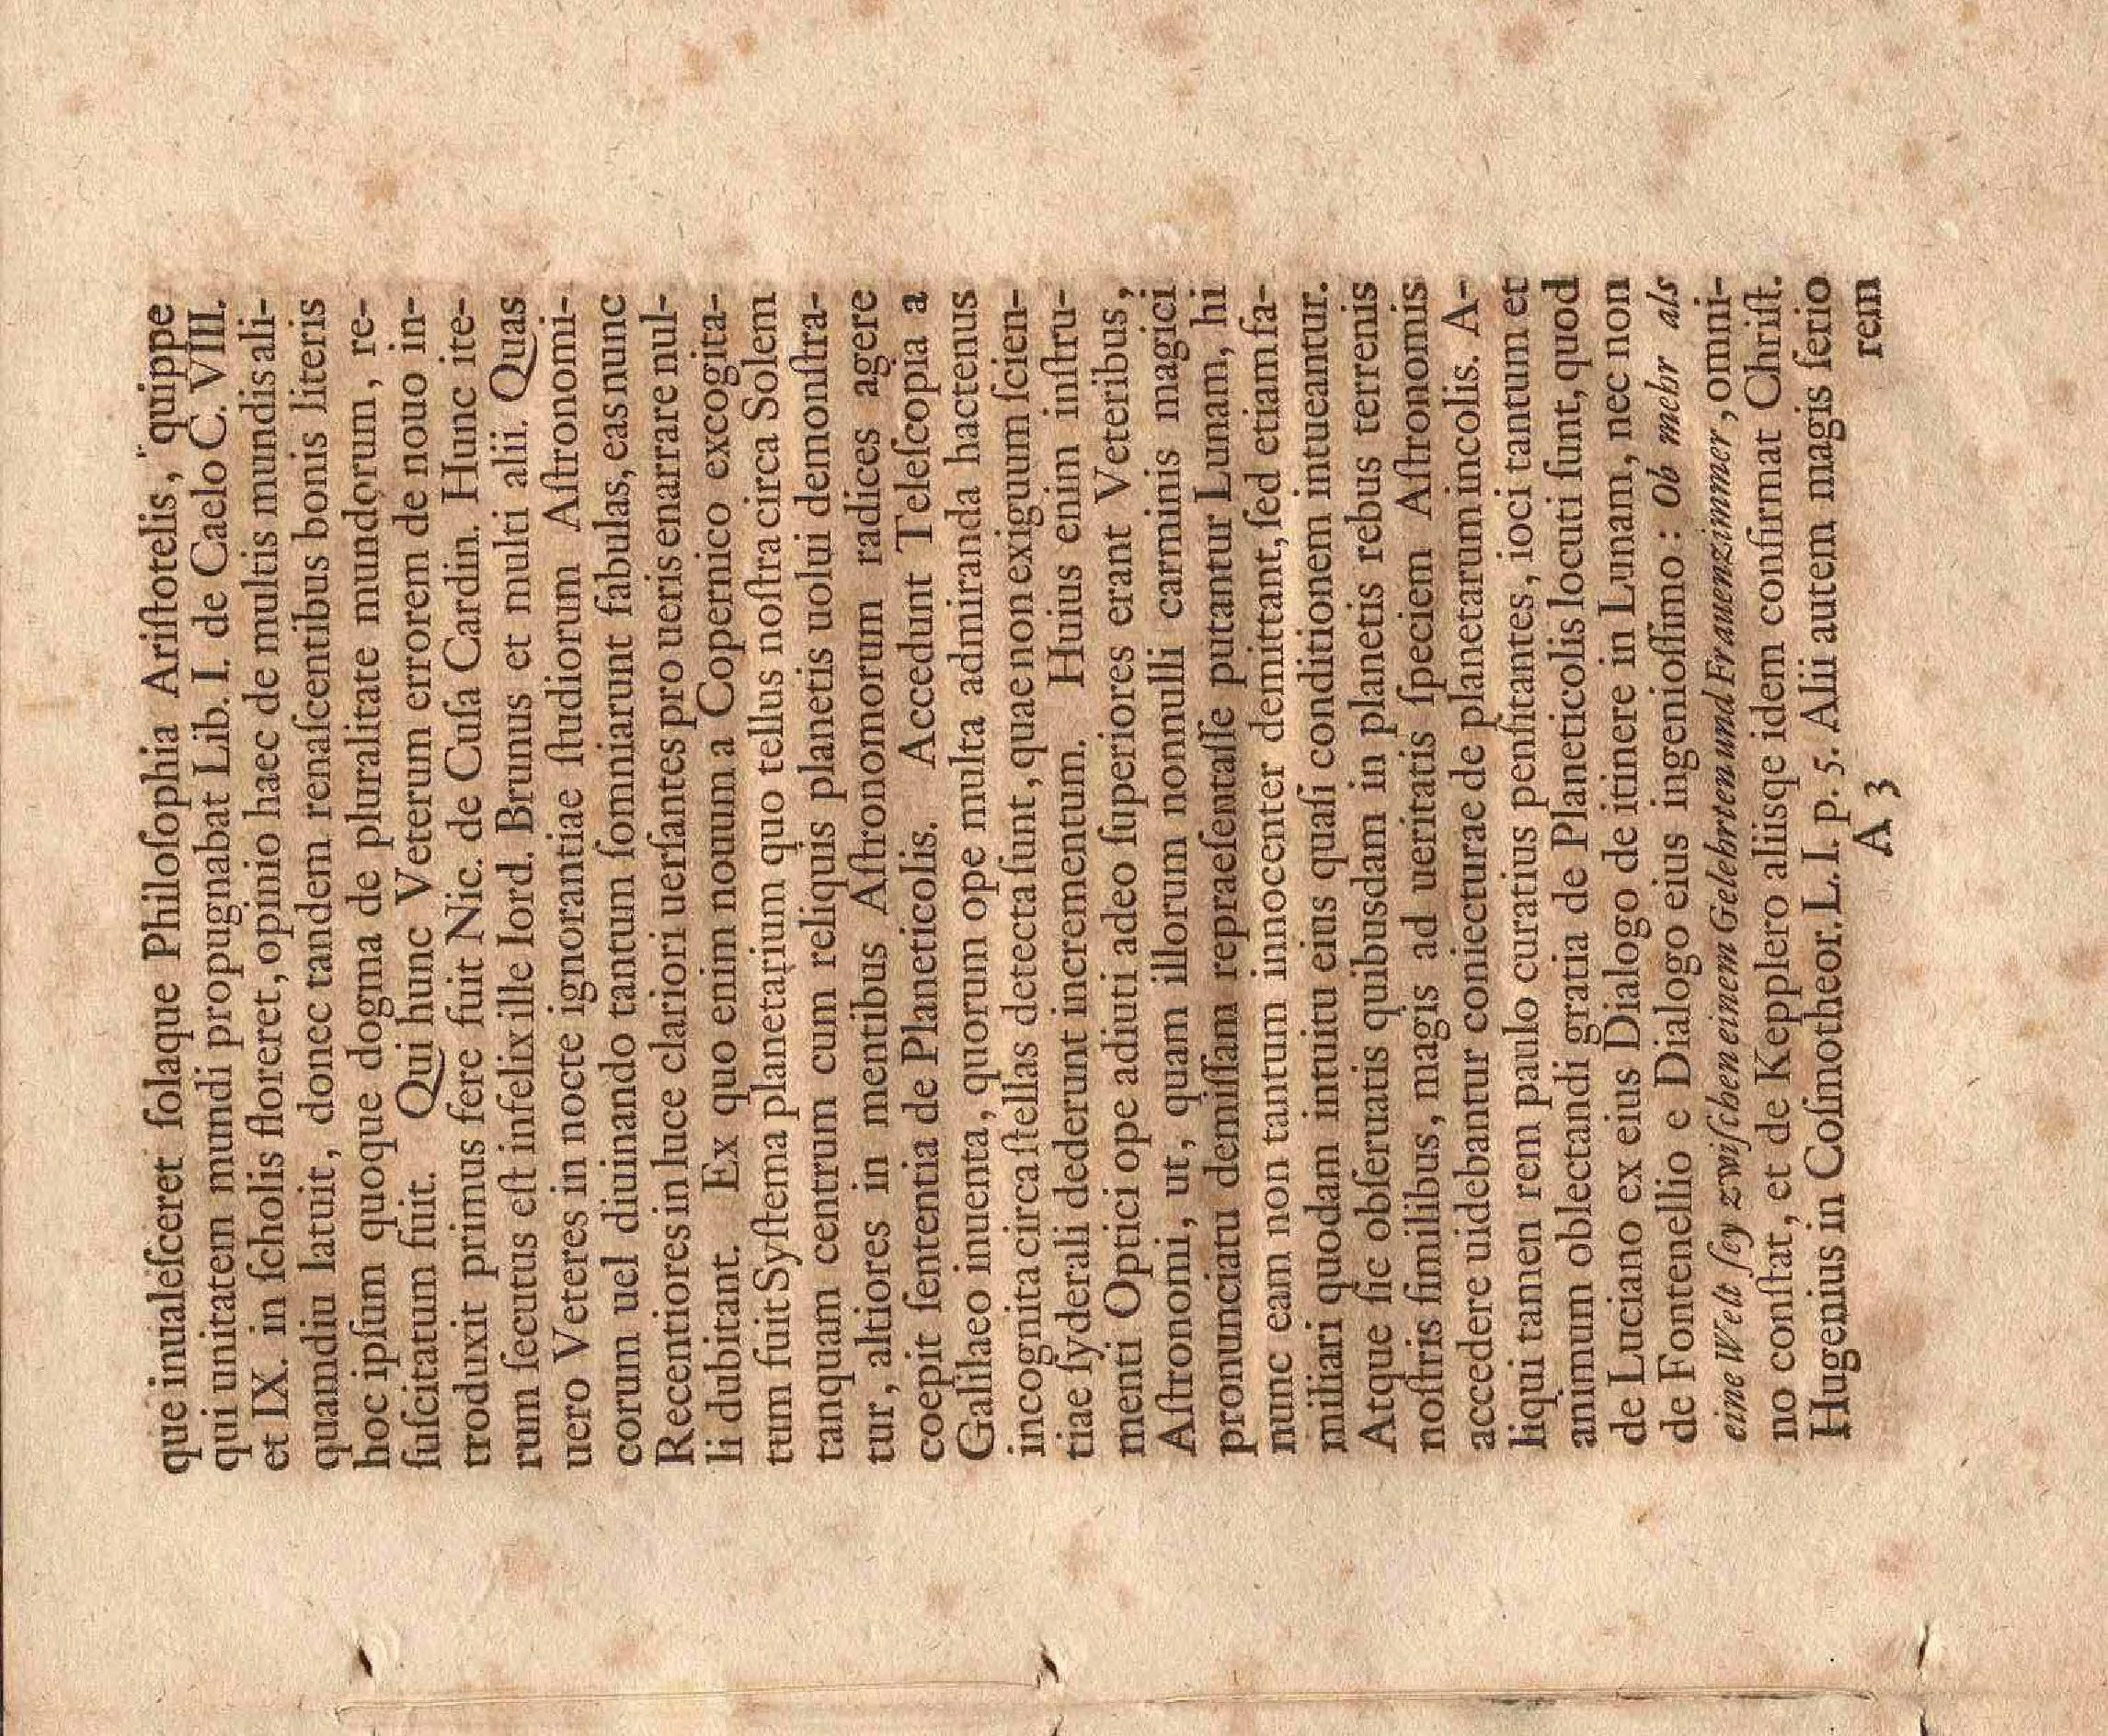 que inualeſceret ſolaque Philoſophia Ariſtotelis, quippe
qui unitatem mundi propugnabat Lib. I. de Caelo C. VIII.
et IX. in ſcholis floreret, opinio haec de multis mundis ali-
quamdiu latuit, donec tandem renaſcentibus bonis literis
hoc ipſum quoque dogma de pluralitate mundorum, re-
ſuſcitatum fuit. Qui hunc Veterum errorem de nouo in-
troduxit primus fere fuit Nic. de Cuſa Cardin. Hunc ite-
rum ſecutus eſt infelix ille Iord. Brunus et multi alii. Quas
uero Veteres in nocte ignorantiae ſtudiorum Aſtronomi-
corum uel diuinando tantum ſomniarunt fabulas, eas nunc
Recentiores in luce clariori uerſantes pro ueris enarrare nul-
li dubitant. Ex quo enim nouum a Copernico excogita-
tum fuit Syſtema planetarium quo tellus noſtra circa Solem
tanquam centrum cum reliquis planetis uolui demonſtra-
tur, altiores in mentibus Aſtronomorum radices agere
coepit ſententia de Planeticolis. Accedunt Teleſcopia a
Galilaeo inuenta, quorum ope multa admiranda hactenus
incognita circa ſtellas detecta ſunt, quae non exiguum ſcien-
tiae ſyderali dederunt incrementum. Huius enim inſtru-
menti Optici ope adiuti adeo ſuperiores erant Veteribus,
Aſtronomi, ut, quam illorum nonnulli carminis magici
pronunciatu demiſſam repraeſentaſſe putantur Lunam, hi
nunc eam non tantum innocenter demittant, ſed etiam fa-
miliari quodam intuitu eius quaſi conditionem intueantur.
Atque ſic obſeruatis quibusdam in planetis rebus terrenis
noſtris ſimilibus, magis ad ueritatis ſpeciem Aſtronomis
accedere uidebantur coniecturae de planetarum incolis. A-
liqui tamen rem paulo curatius penſitantes, ioci tantum et
animum oblectandi gratia de Planeticolis locuti ſunt, quod
de Luciano ex eius Dialogo de itinere in Lunam, nec non
de Fontenellio e Dialogo eius ingenioſſimo: Ob mehr als
eine Welt ſey zwiſchen einem Gelehrten und Frauenzimmer, omni-
no conſtat, et de Kepplero aliisqe idem confirmat Chriſt.
Hugenius in Coſmotheor. L. I. p. 5. Alii autem magis ſerio
A 3
rem